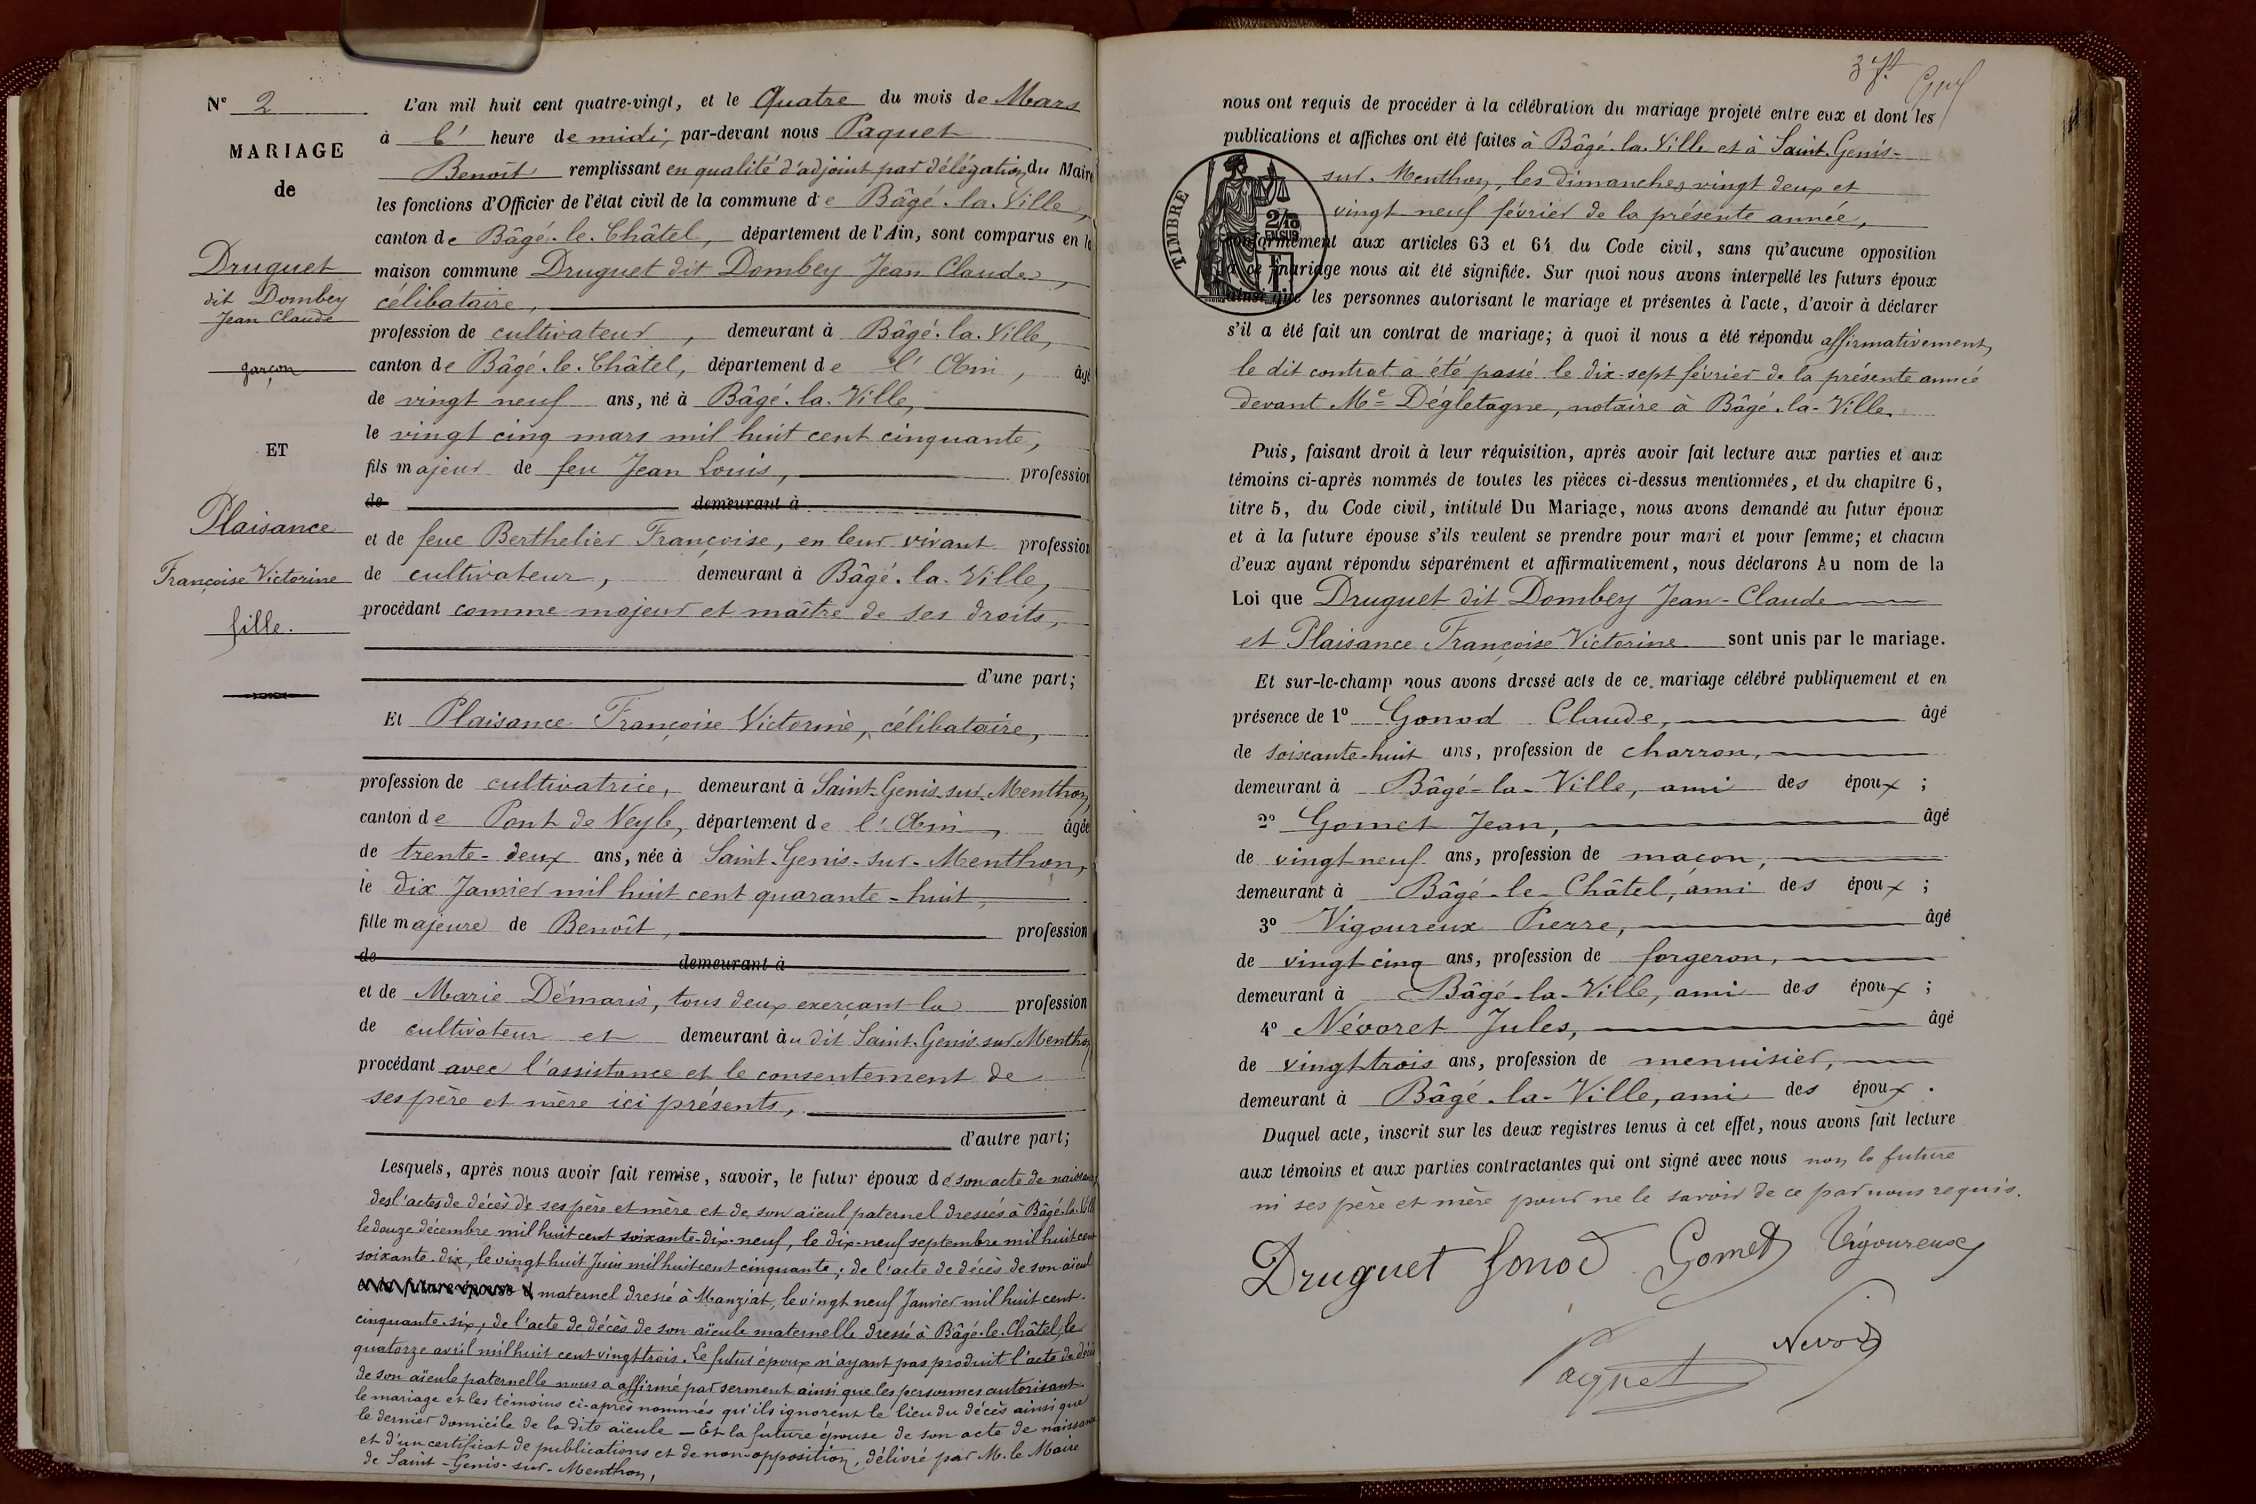 N° 2
MARIAGE
de
Druguet
dit Dombey
Jean Claude
garçon
ET
Plaisance
Françoise Victorine
fille.
L'an mil huit cent quatre-vingt, et le Quatre du mois de Mars
à l' heure de midi, par-devant nous Paquet
Benoît remplissant en qualité d'adjoint par délégation du Maire
les fonctions d'Officier de l'état civil de la commune de Bâgé-la-Ville,
canton de Bâgé-le-Châtel, département de l'Ain, sont comparus en la
maison commune Druguet dit Dombey Jean Claude,
célibataire,
profession de cultivateur, demeurant à Bâgé-la-Ville,
canton de Bâgé-le-Châtel, département de l'Ain, âgé
de vingt neuf ans, né à Bâgé-la-Ville,
le vingt cinq mars mil huit cent cinquante,
fils majeur de feu Jean Louis, profession
de demeurant à
et de feue Berthelier Françoise, en leur vivant profession
de cultivateur, demeurant à Bâgé-la-Ville,
procédant comme majeur et maître de ses droits,
d'une part;
Et Plaisance Françoise Victorine, célibataire,
profession de cultivatrice, demeurant à Saint-Genis-sur-Menthon,
canton de Pont de Veyle, département de l'Ain, âgée
de trente-deux ans, née à Saint-Genis-sur-Menthon,
le dix Janvier mil huit cent quarante-huit,
fille majeure de Benoît, profession
de demeurant à
et de Marie Démaris, tous deux exerçant la profession
de cultivateur et demeurant au dit Saint-Genis-sur-Menthon
procédant avec l'assistance et le consentement de
ses père et mère ici présents,
d'autre part;
Lesquels, après nous avoir fait remise, savoir, le futur époux de son acte de naissance,
des l'actes de décès de ses père et mère et de son aïeul paternel dressés à Bâgé-la-Ville
le douze décembre mil huit cent soixante-dix-neuf, le dix-neuf septembre mil huit cent
soixante-dix, le vingt huit Juin mil huit cent cinquante; de l'acte de décès de son aïeul
et la future épouse d maternel dressé à Manziat, le vingt neuf Janvier mil huit cent
cinquante-six; de l'acte de décès de son aïeule maternelle dressé à Bâgé-le-Châtel, le
quatorze avril mil huit cent vingt trois. Le futur époux n'ayant pas produit l'acte de décès
de son aïeule paternelle nous a affirmé par serment ainsi que les personnes autorisant
le mariage et les témoins ci-après nommés qu'ils ignorent le lieu du décès ainsi que
le dernier domicile de la dite aïeule - Et la future épouse de son acte de naissance
et d'un certificat de publications et de non-opposition, délivré par M. le Maire
de Saint-Genis-sur-Menthon,
nous ont requis de procéder à la célébration du mariage projeté entre eux et dont les
publications et affiches ont été faites à Bâgé-la-Ville et à Saint-Genis-
sur-Menthon, les dimanches vingt deux et
vingt neuf février de la présente année,
TIMBRE
2/10
EN SUS
conformément aux articles 63 et 64 du Code civil, sans qu'aucune opposition
à ce mariage nous ait été signifiée. Sur quoi nous avons interpellé les futurs époux
ainsi que les personnes autorisant le mariage et présentes à l'acte, d'avoir à déclarer
s'il a été fait un contrat de mariage; à quoi il nous a été répondu affirmativement,
le dit contrat a été passé le dix-sept février de la présente année
devant Me Dégletagne, notaire à Bâgé-la-Ville.
Puis, faisant droit à leur réquisition, après avoir fait lecture aux parties et aux
témoins ci-après nommés de toutes les pièces ci-dessus mentionnées, et du chapitre 6,
titre 5, du Code civil, intitulé Du Mariage, nous avons demandé au futur époux
et à la future épouse s'ils veulent se prendre pour mari et pour femme; et chacun
d'eux ayant répondu séparément et affirmativement, nous déclarons Au nom de la
Loi que Druguet dit Dombey Jean-Claude
et Plaisance Françoise Victorine sont unis par le mariage.
Et sur-le-champ nous avons dressé acte de ce mariage célébré publiquement et en
présence de 1° Gonod Claude, âgé
de soixante-huit ans, profession de charron,
demeurant à Bâgé-la-Ville, ami des époux;
2° Gomet Jean, âgé
de vingt neuf ans, profession de maçon,
demeurant à Bâgé-le-Châtel, ami des époux;
3° Vigoureux Pierre, âgé
de vingt cinq ans, profession de forgeron,
demeurant à Bâgé-la-Ville, ami des époux;
4° Névoret Jules, âgé
de vingt trois ans, profession de menuisier,
demeurant à Bâgé-la-Ville, ami des époux.
Duquel acte, inscrit sur les deux registres tenus à cet effet, nous avons fait lecture
aux témoins et aux parties contractantes qui ont signé avec nous non la future
ni ses père et mère pour ne le savoir de ce par nous requis.
Druguet Gonod Gomet Vigoureux
Paquet